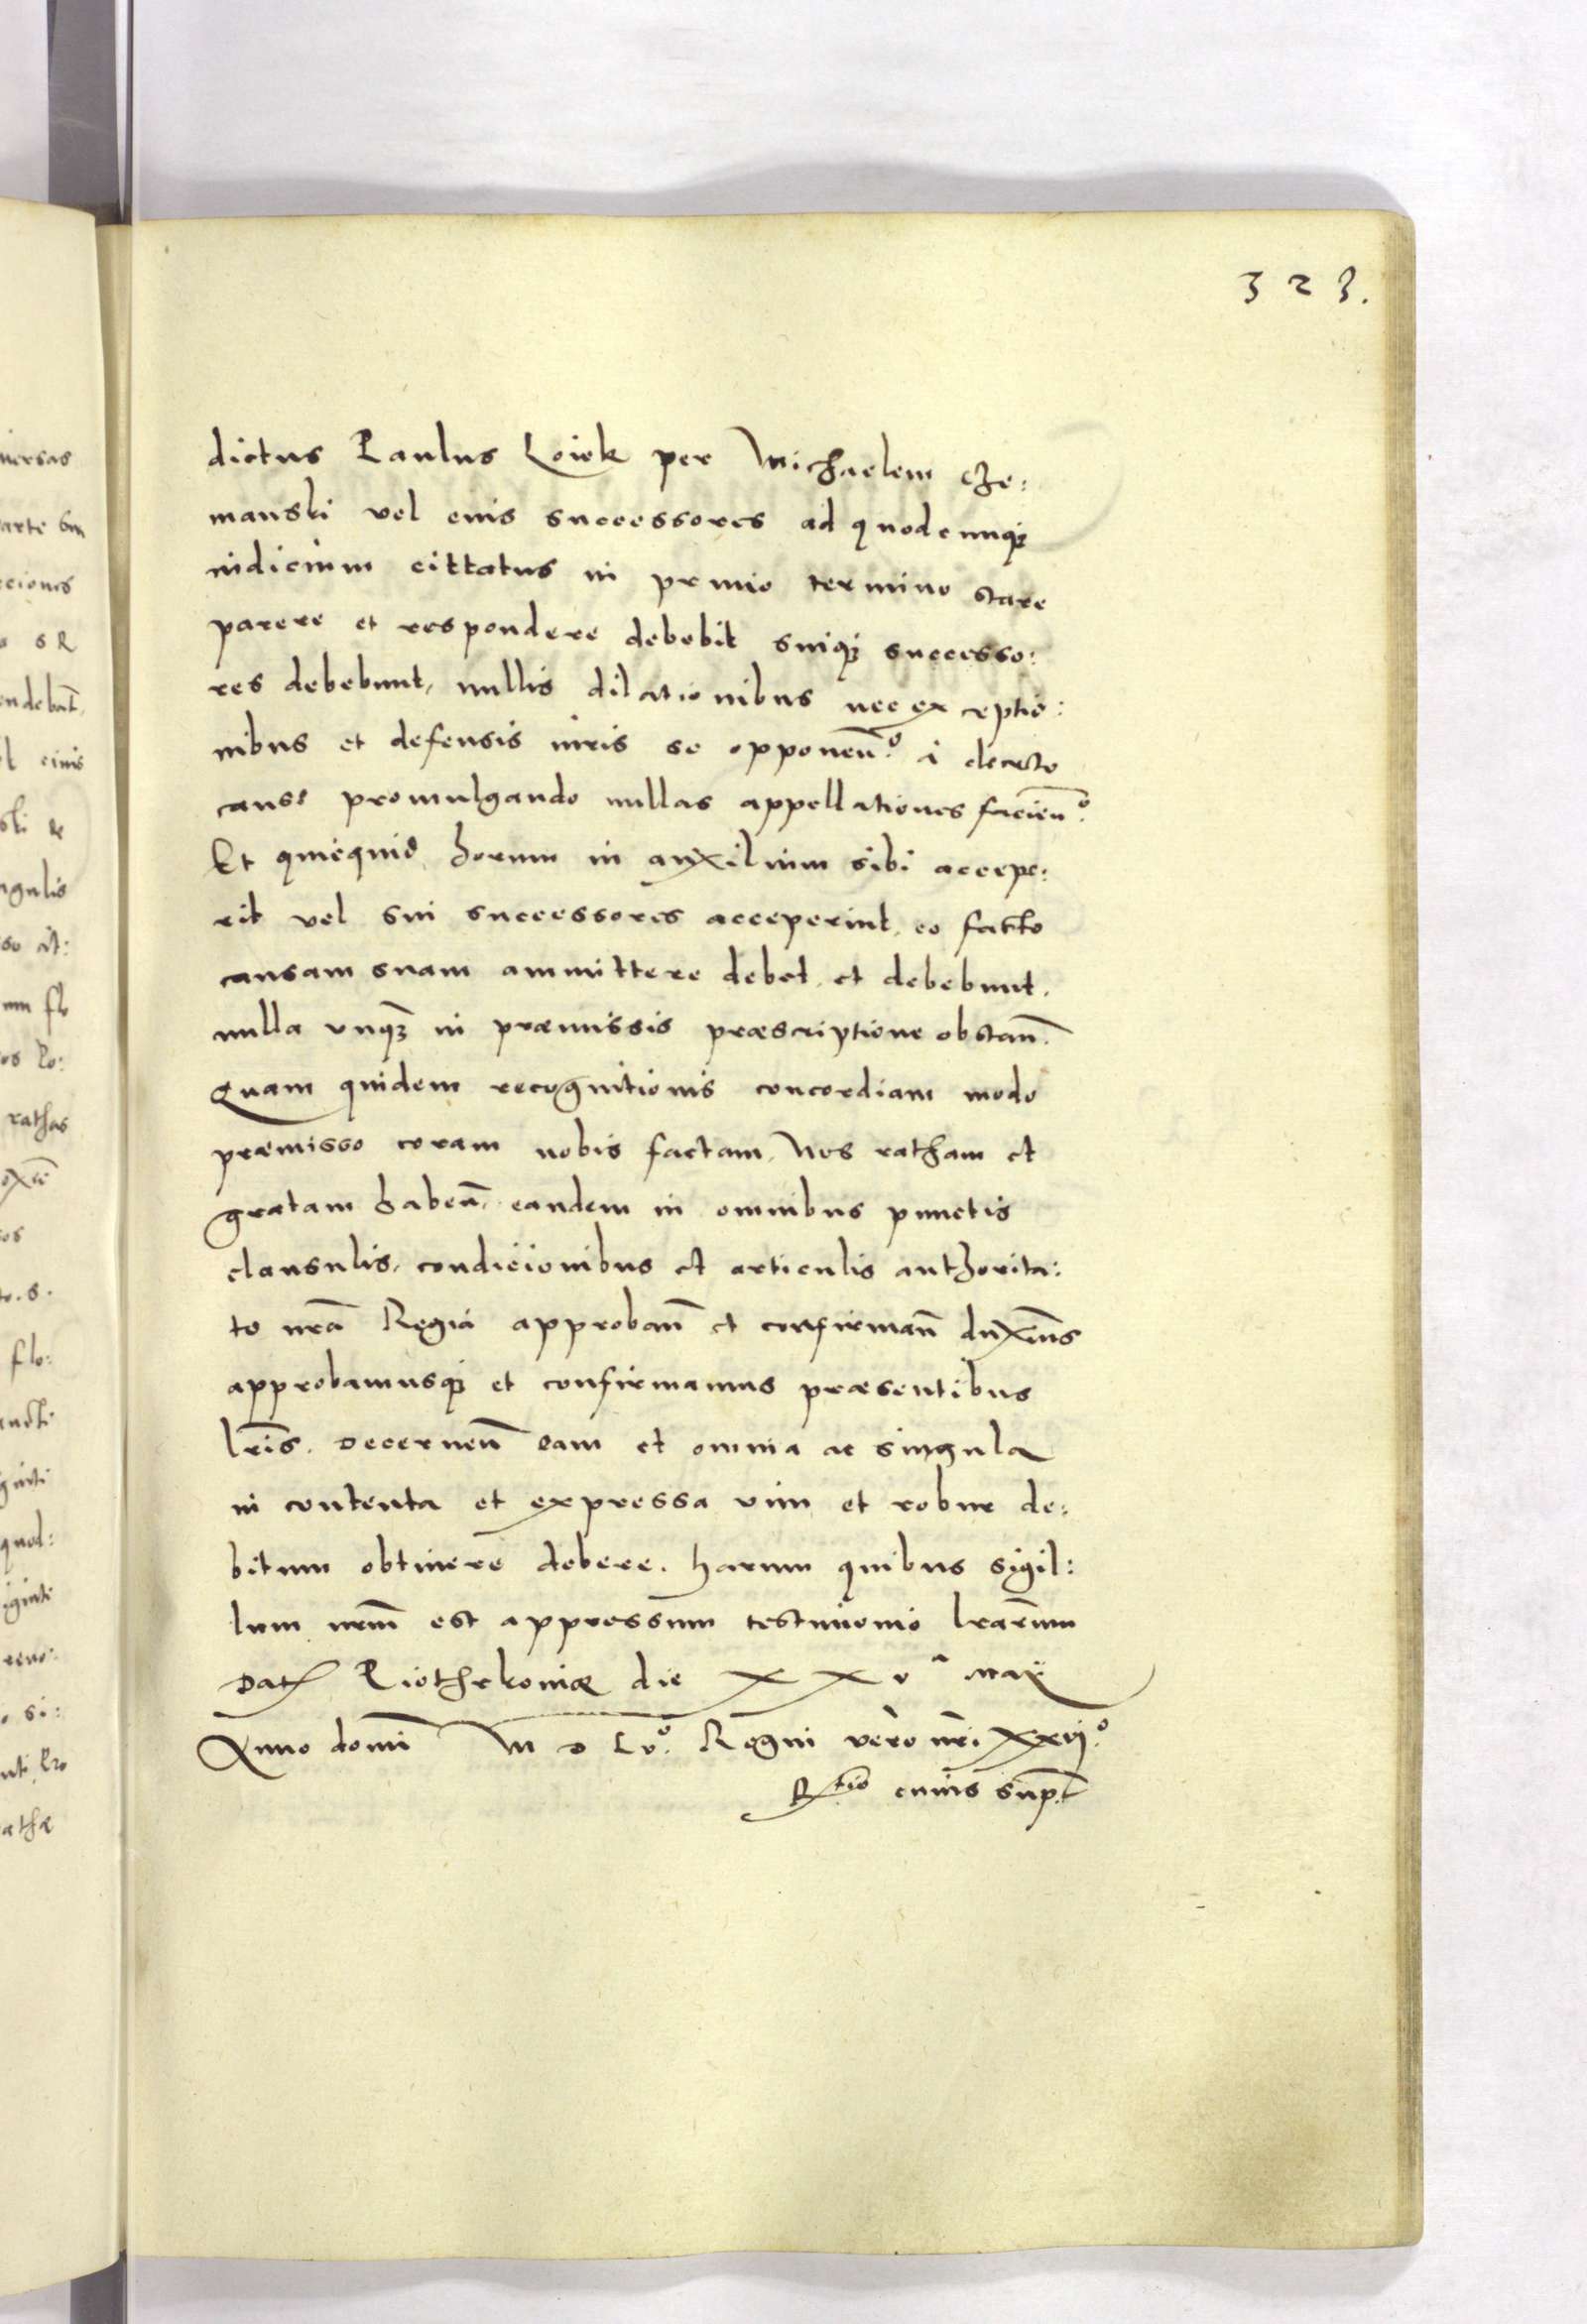 323.
dictus Paulus Loiek per Michaelem Cze:
manski vel eius successores ad quodcunq3
iudicium cittatus in primo termino stare
parere et respondere debebit suiq3 successo:
res debebunt, nullis dilationibus nec exceptio:
nibus et defensis iuris se opponen̄º. à decreto
causę promulgando nullas appellationes facien̄º.
Et quicquid horum in auxilium sibi accepe:
rit vel sui successores acceperint, eo facto
causam suam ammittere debet, et debebunt.
nulla unq̄3 in præmissis præscriptione obstan̄.
Quam quidem recognitionis concordiam modo
præmisso coram nobis factam, Nos ratham et
gratam haben̄, eandem in omnibus punctis
clausulis, condicionibus et articulis authorita:
te nrā Regia approban̄ et confirman̄ duxim̄s
approbamusq3 et confirmamus præsentibus
lrīs. Decernen̄ eam et omnia ac singula
in contenta et expressa vim et robur de:
bitum obtinere debere. Harum quibus sigil:
lum nrm̄ est appressum testimonio lrarūm
Dat Piothrkoviæ die XXV^a Maii
Anno domī M D LVº. Regni vero nrī XXVIº.
Rtio cuius sup.t